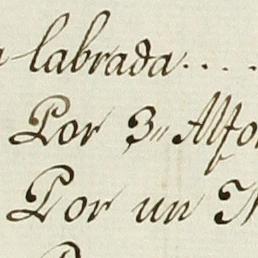 labrada....
Por 3,, Alfo
Por un